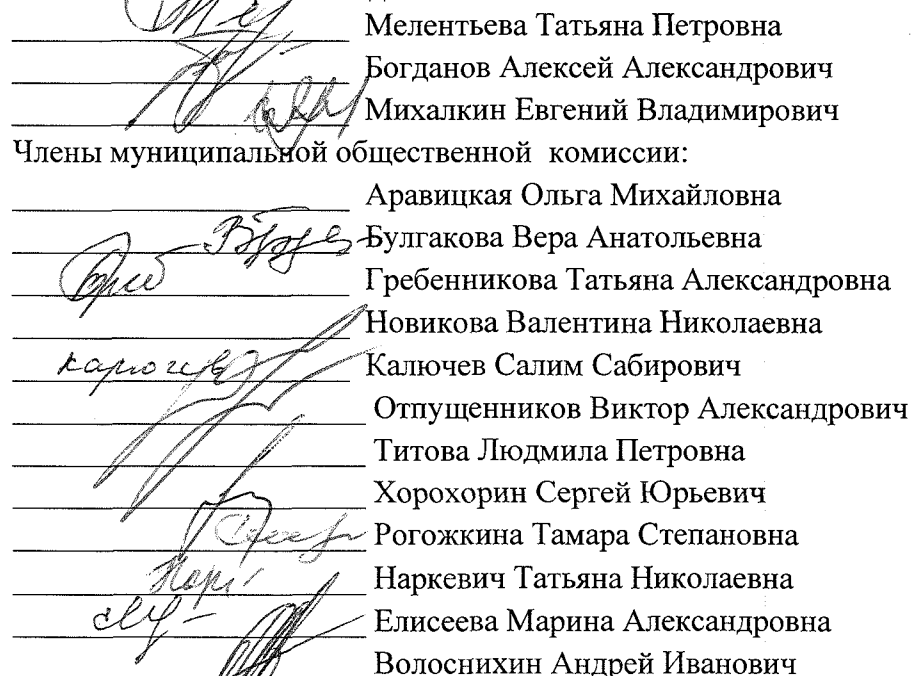 Мелентьева Татьяна Петровна
Богданов Алексей Александрович
Михалкин Евгений Владимирович
Члены муниципальной общественной комиссии:
Аравицкая Ольга Михайловна
Булгакова Вера Анатольевна
Гребенникова Татьяна Александровна
Новикова Валентина Николаевна
Калючев Салим Сабирович
Отпущенников Виктор Александрович
Титова Людмила Петровна
Хорохорин Сергей Юрьевич
Рогожкина Тамара Степановна
Наркевич Татьяна Николаевна
Елисеева Марина Александровна
Волоснихин Андрей Иванович